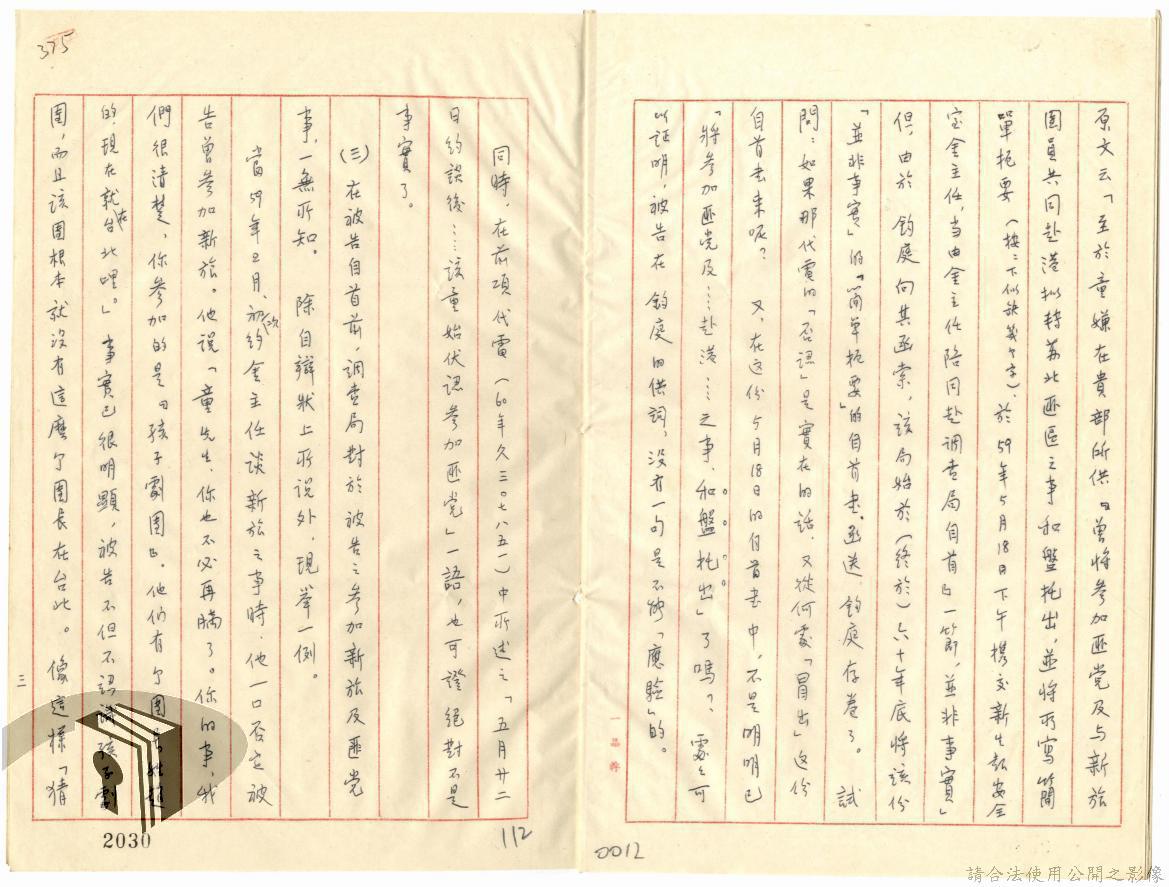 原文云「至於童嫌在貴部所供『曾將參加匪党及与新旅
團員共同赴港拟转苏北匪區之事和盤托出,並將所寫簡
單扼要(按:下似缺幾个字)、於59年5月18日下午攜交新生報安全
室金主任,当由金主任陪同赴調查局自首』一節,並非事實」
但,由於 鈞庭向其函索,該局始於(終於)六十年底将該份
「並非事實」的「簡單扼要」的自首書,函送 鈞庭存卷了。 試
問:如果那代電的「否認」是實在的話,又從何處「冒出」这份
自首书来呢? 又,在这份5月18日的自首书中,不是明明已
「將參加匪党及……赴港……之事,和盤托出」了嗎? 處之可
以証明,被告在 鈞庭的供詞,没有一句是不能「應驗」的。
同時,在前項代電(60年久三〇七八五一)中所述之「五月廿二
日約談後……該童始伏認參加匪党」一語,也可證絕對不是
事實了。
(三)在被告自首前,調查局對於被告之參加新旅及匪党
事,一無所知。 除自辯狀上所说外,現举一例。
當59年2月、初次約金主任谈新旅之事時,他一口否定被
告曾參加新旅。他说「童先生,你也不必再瞞了。你的事,我
們很清楚,你參加的是『孩子劇團』。他们有个團長姓趙
的,現在就在台北哩。」事實已很明顯,被告不但不認識孩子劇
團,而且該團根本就没有這麼个團長在台北。 像這樣「猜
三
375
2030
112
0012
一品牌
請合法使用公開之影像